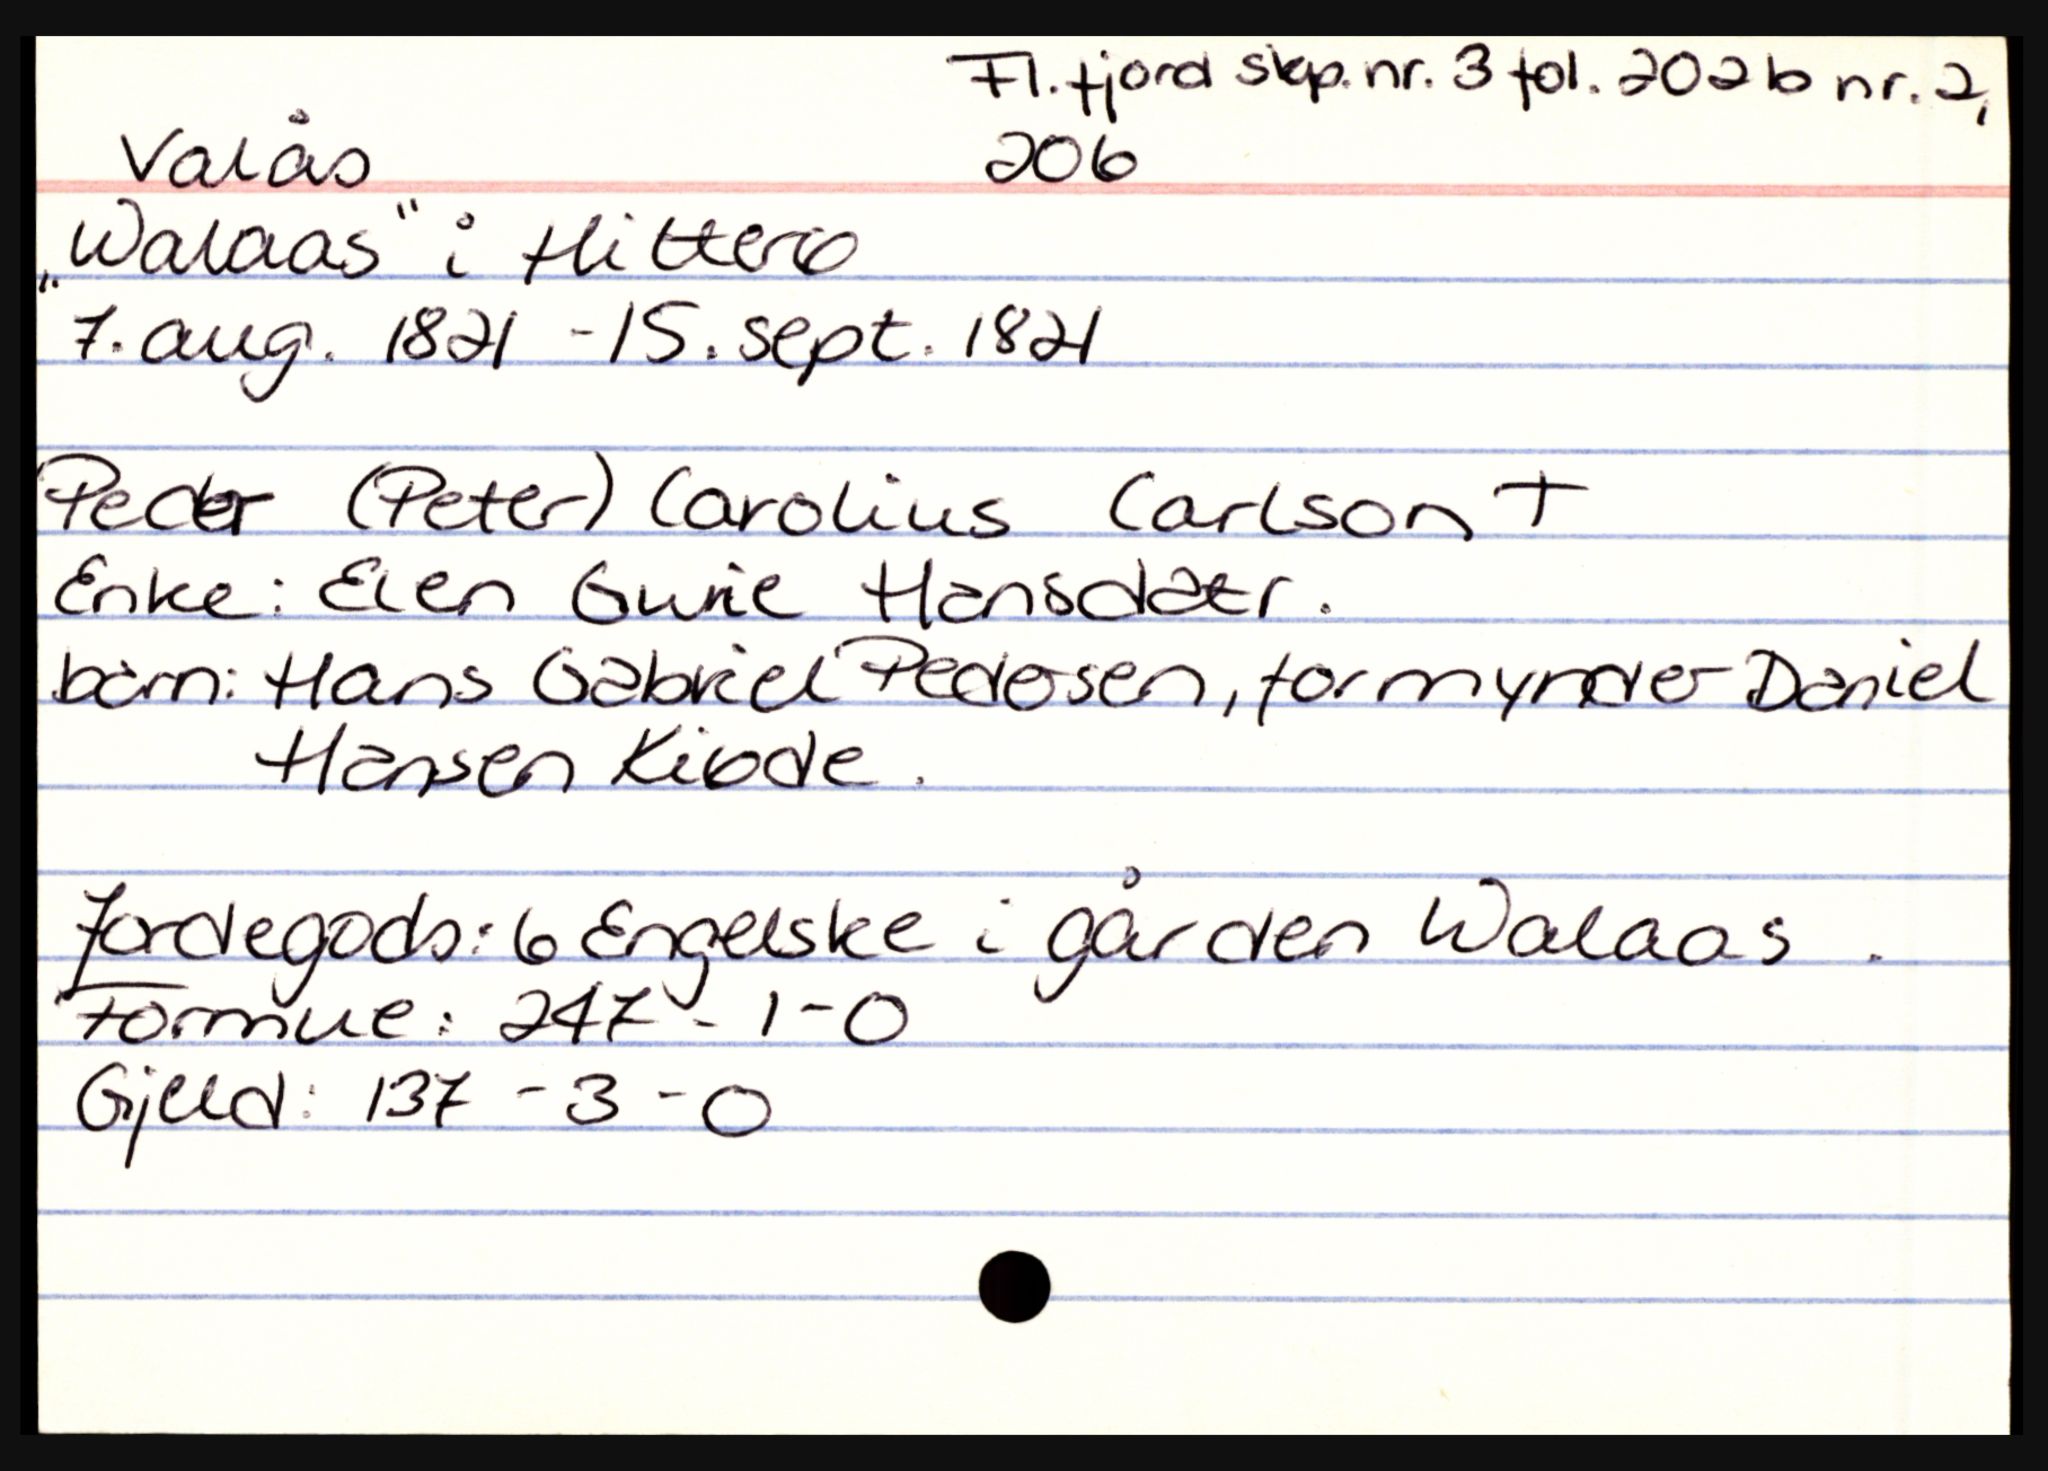 Fl.fjord skp.nr. 3 fol. 202b nr. 2,
Valås 206
„Walaas" i Hitterø
7. aug. 1821 - 15. sept. 1821
Peder (Peter) Carolius Carlson +
Enke: Elen Gurie Hansdatr.
børn: Hans Gabriel Pedersen, formynder Daniel
Hansen Kiøde.
Jordegods: 6 Engelske i gården Walaas.
Formue: 247 - 1 - 0
Gjeld: 137 - 3 - 0